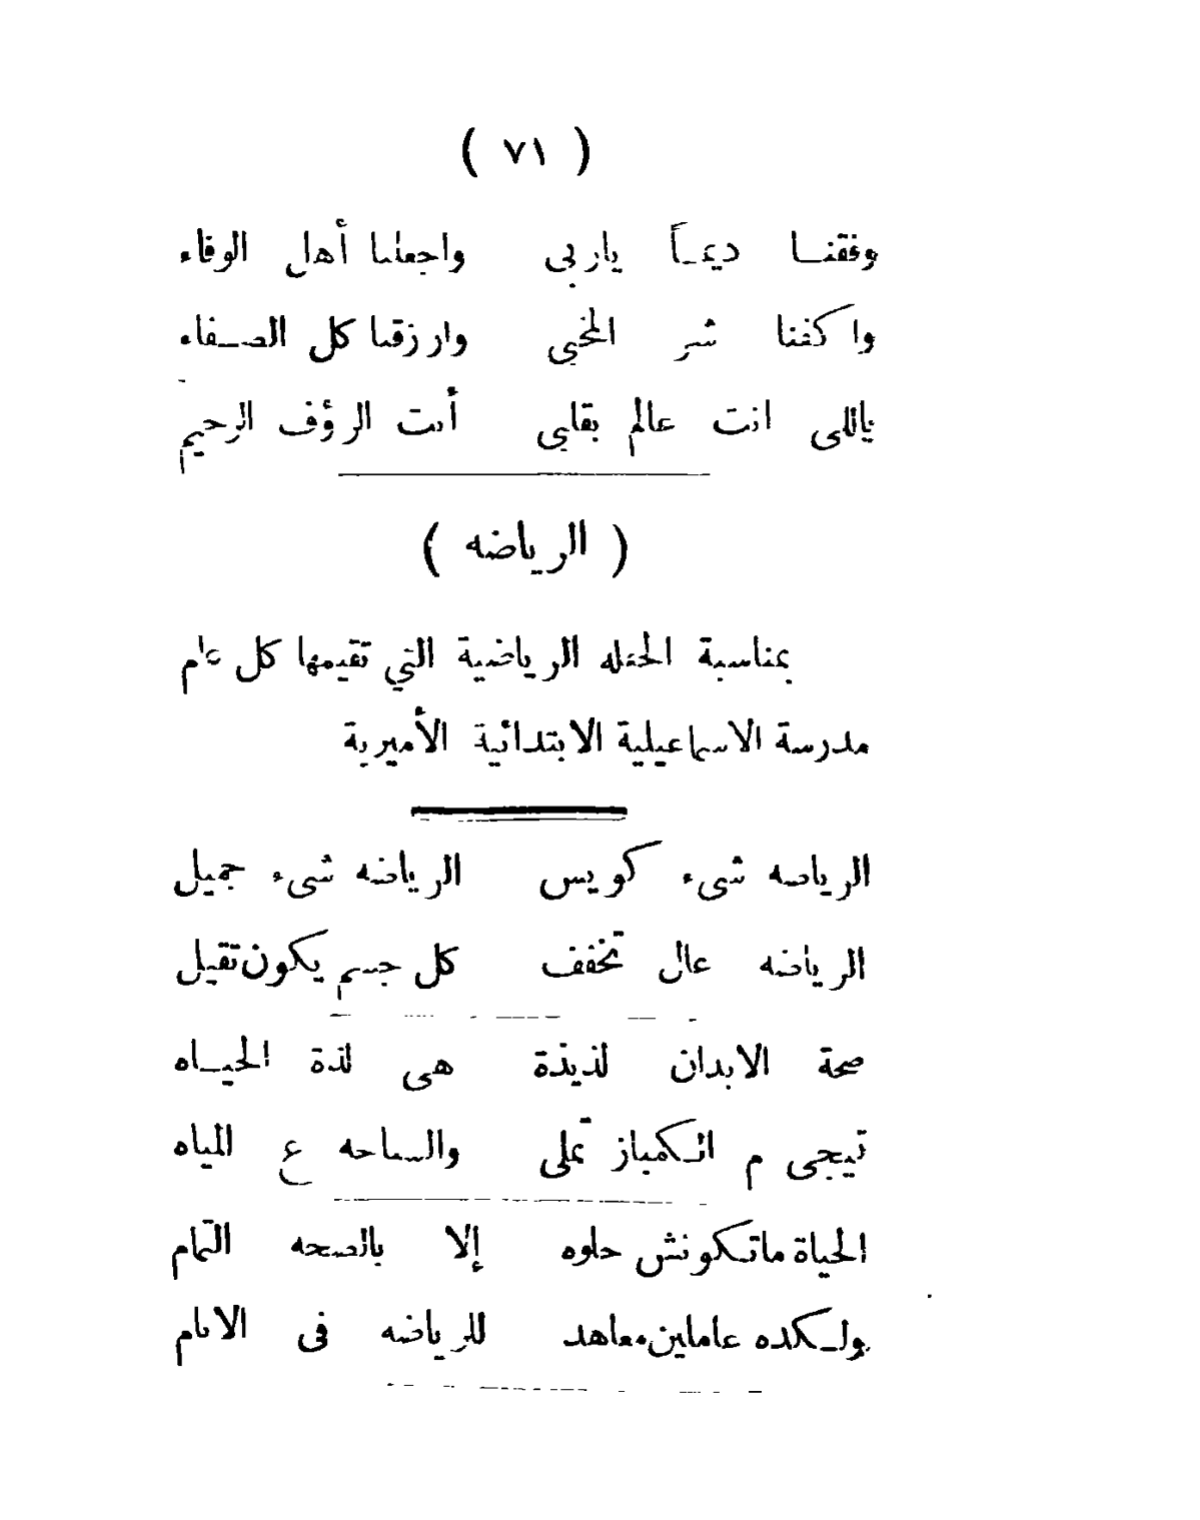 ( ٧١ )
وفقنا ديماً ياربي واجعلنا أهل الوفاء
واكفنا شر المخبي وارزقنا كل الصفاء
ياللى انت عالم بقلبي أنت الرؤف الرحيم
( الرياضه )
بمناسبة الحفله الرياضية التي تقيمها كل عام
مدرسة الاسماعيلية الابتدائية الأميرية
الرياضه شىء كويس الرياضه شىء جميل
الرياضه عال تخفف كل جسم يكون تقيل
صحة الابدان لذيذة هى لذة الحياه
تيجى م الكمباز تملى والسباحه ع المياه
الحياة ماتكونش حلوه إلا بالصحه التمام
ولكده عاملين معاهد للرياضه فى الايام